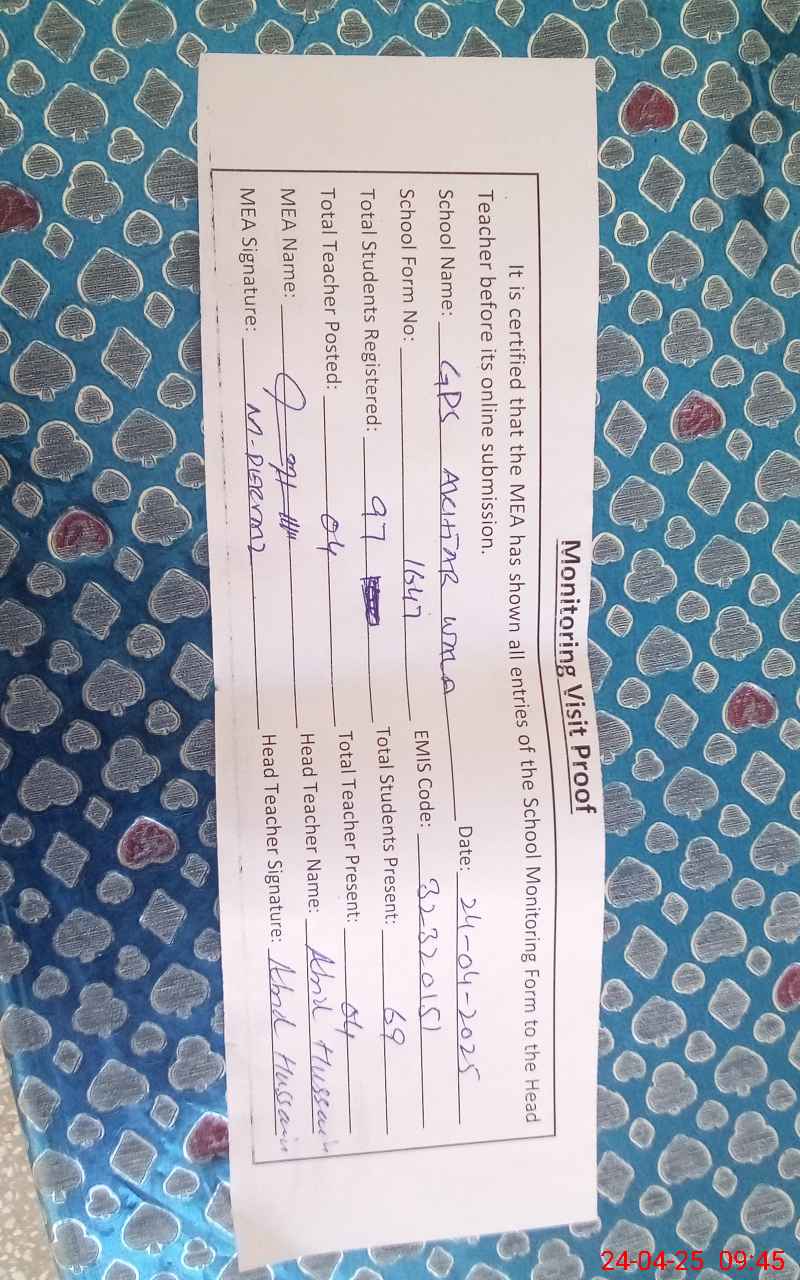 Monitoring Visit Proof
It is certified that the MEA has shown all entries of the School Monitoring Form to the Head
Teacher before its online submission.
School Name: GPS AKHTAR WALA Date: 24-04-2025
School Form No: 1647 EMIS Code: 32320151
Total Students Registered: 97 Total Students Present: 69
Total Teacher Posted: 04 Total Teacher Present: 04
MEA Name: Head Teacher Name: Abid Hussain
MEA Signature: Head Teacher Signature: Abid Hussain
24-04-25 09:45